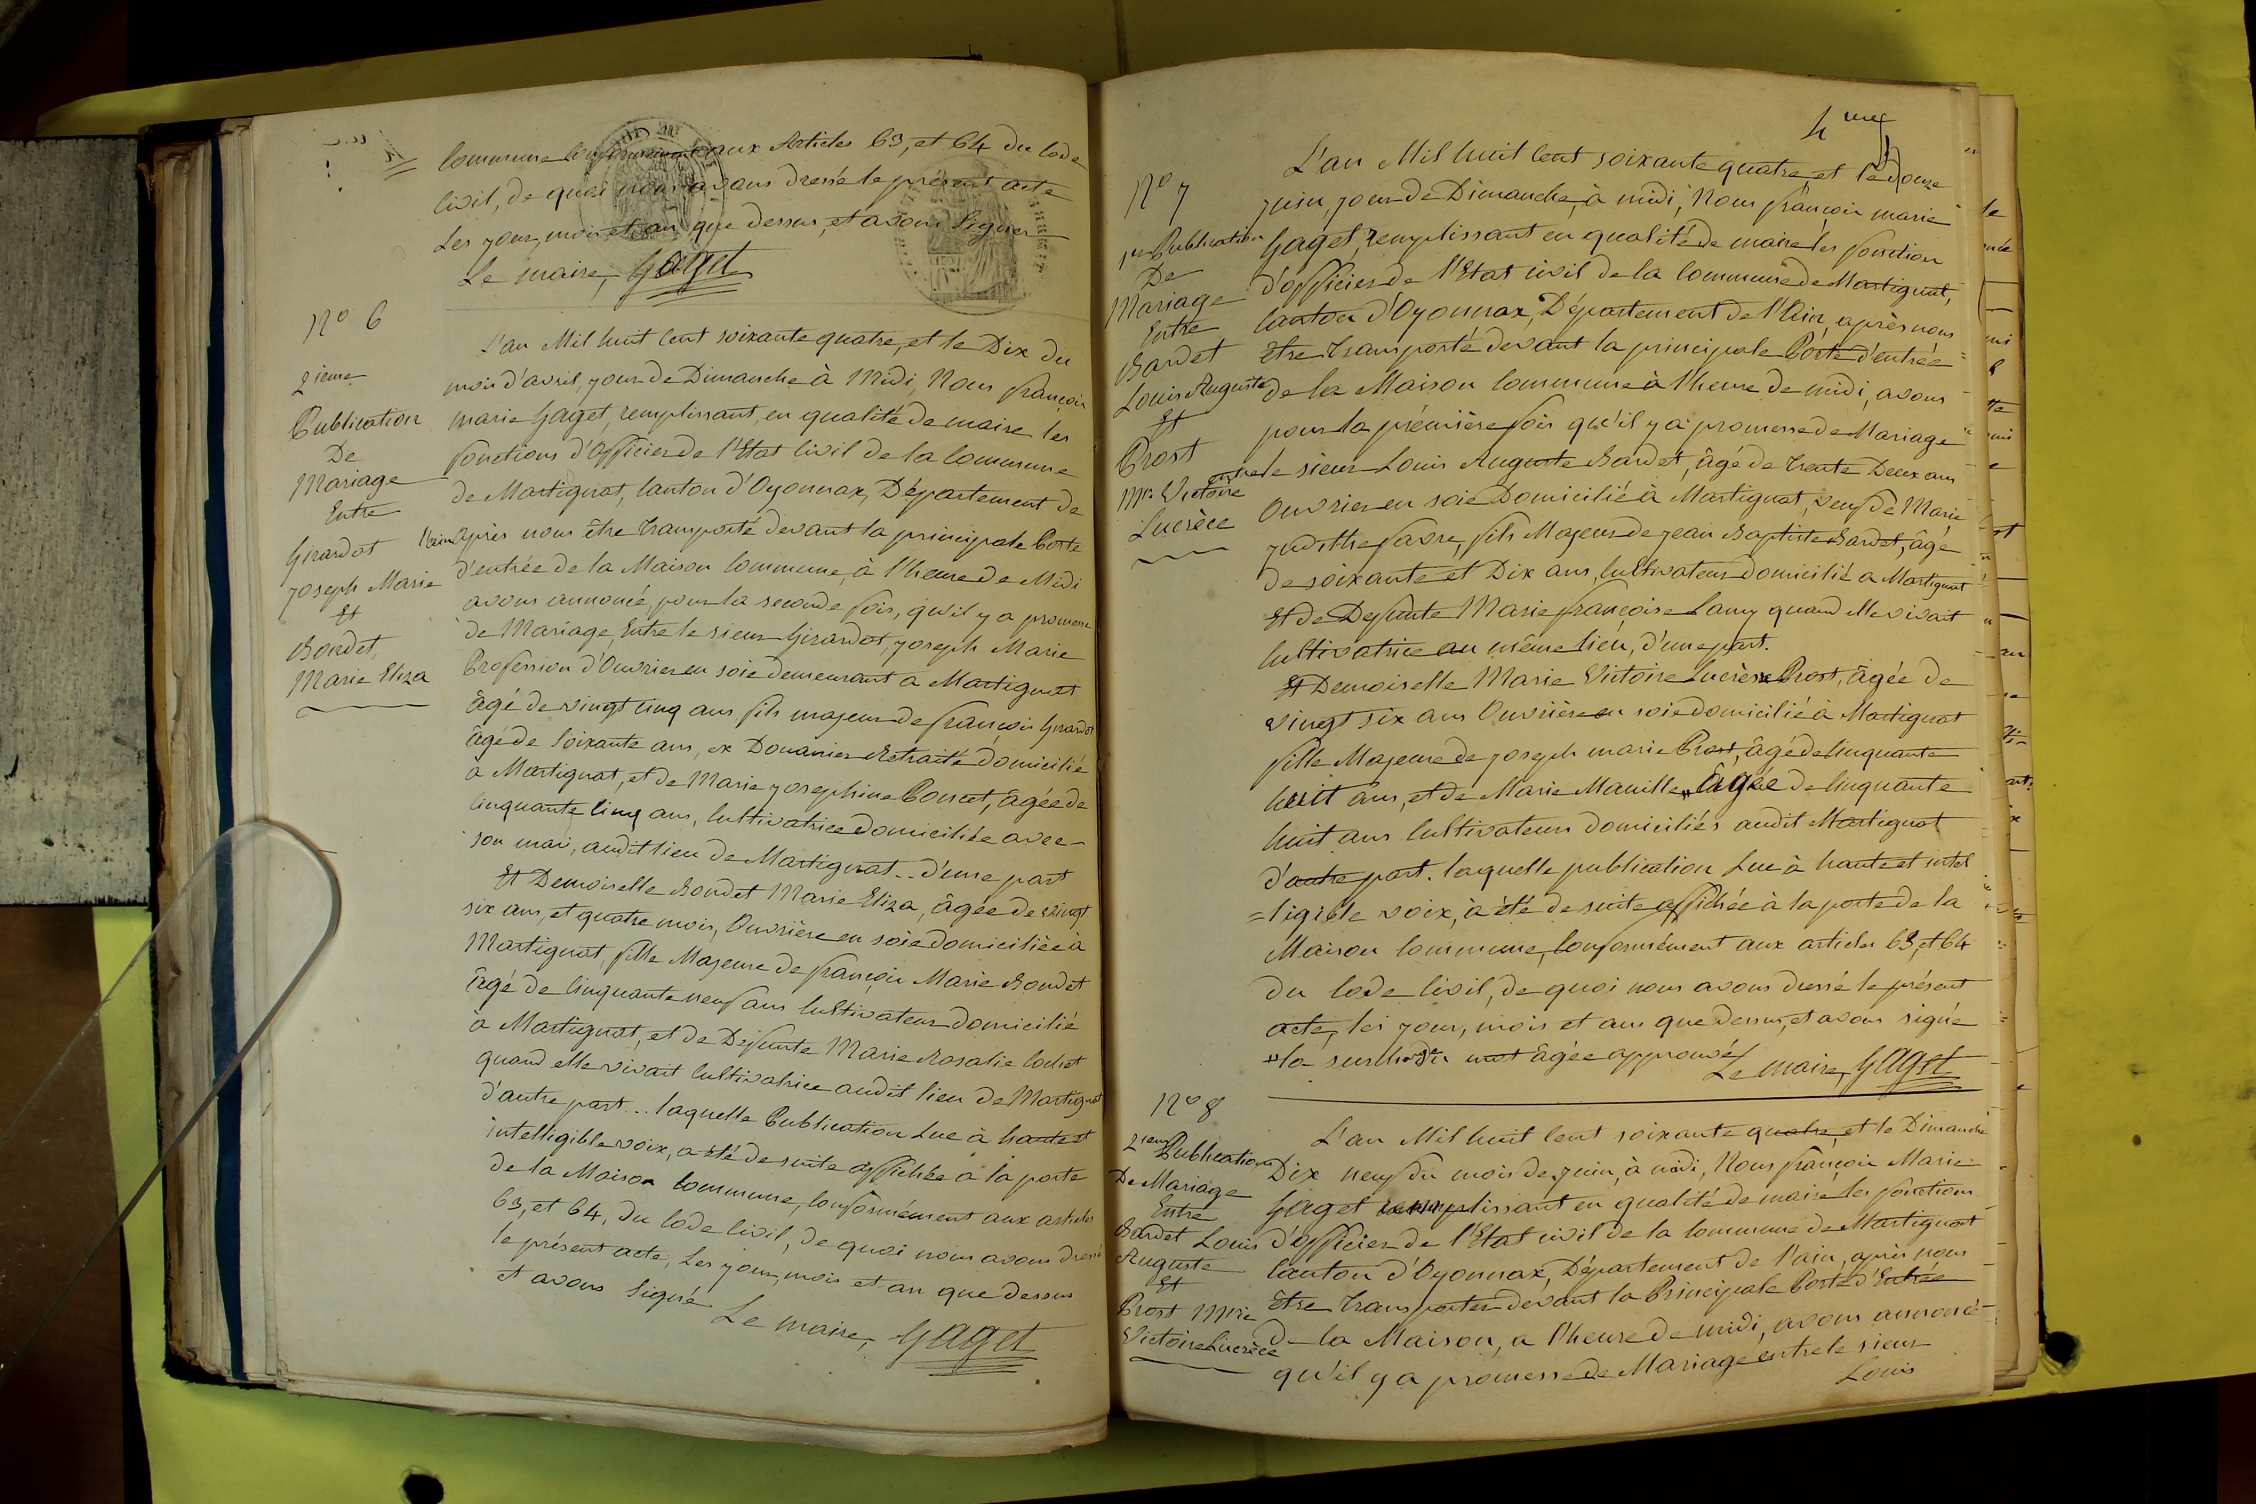 Commune conformément aux Articles 63, et 64 du Code
Civil, de quoi nous avons dressé le présent acte
Les jour, mois et an que dessus, et avons Signer
Le maire, Gaget
N° 6
2ieme
Publication
De
Mariage
Entre
Girardot
Joseph Marie
Et
Bondet,
Marie Eliza
L'an Mil huit Cent soixante quatre, et le Dix du
mois d'avril, jour de Dimanche à Midi, Nous françois
marie Gaget, remplissant, en qualité de maire les
fonctions d'Officier de l'Etat Civil de la Commune
de Martignat, Canton d'Oyonnax, Département de
l'ain Après nous être transporté devant la principale Porte
d'entrée de la Maison Commune, à l'heure de Midi
avons annoncé, pour la seconde fois, qu'il y a promesse
de Mariage, Entre le sieur Girardot, Joseph Marie
Profession d'Ouvrier en soie demeurant a Martignat
âgé de vingt cinq ans fils majeur de françois Girardot
âgé de Soixante ans, ex Douanier Retraité domicilié
a Martignat, et de Marie Josephine Poncet, âgée de
Cinquante Cinq ans, Cultivatrice domiciliée avec
son mari, audit lieu de Martignat .. d'une part
Et Demoiselle Bondet Marie Eliza, âgée de vingt
six ans, et quatre mois, Ouvrière en soie domiciliée à
Martignat, fille Majeure de françois Marie Bondet
âgé de Cinquante neuf ans Cultivateur domicilié
à Martignat, et de Defunte Marie Rosalie Cochet
quand elle vivait Cultivatrice audit lieu de Martignat
d'autre part... laquelle Publication Lue à haute et
intelligible voix, a été de suite affichée à la porte
de la Maison Commune, Conformément aux articles
63, et 64, du Code Civil, de quoi nous avons dressé
le présent acte, Les jour, mois et an que dessus
et avons Signé
Le maire, Gaget
4me
N° 7
1re Publication
De
Mariage
Entre
Bardet
Louis Auguste
Et
Prost
Mie Victoire
Lucrèce
L'an Mil huit Cent soixante quatre et le Douze
Juin, jour de Dimanche, à midi, Nous françois marie
Gaget, remplissant en qualité de maire les fonction
d'officier de l'Etat Civil de la Commune de Martignat,
Canton d'Oyonnax, Département de l'Ain, après nous
Etre transporté devant la principale Porte d'entrée
de la Maison Commune à l'heure de midi, avons
pour la première fois qu'il y a promesse de Mariage
entre le sieur Louis Auguste Bardet, âgé de trente Deux ans
Ouvrier en soie Domicilié à Martignat, veuf de Marie
Judithe favre, fils Majeur de Jean Baptiste Bardet, âgé
de soixante et Dix ans, Cultivateur domicilié a Martignat
Et de Defunte Marie françoise Lamy quand elle vivait
Cultivatrice au même lieu, d'une part.
Et Demoiselle Marie Victoire Lucrèce Prost, âgée de
vingt six ans Ouvrière en soie domicilié à Martignat
fille Majeure de Joseph marie Prost, âgé de Cinquante
huit ans, et de Marie Manille " âgée de Cinquante
huit ans Cultivateurs domiciliés audit Martignat
d'autre part. laquelle publication Lue à haute et intel
=ligible voix, à été de suite affichée à la porte de la
Maison Commune, Conformément aux articles 63, et 64
Du Code Civil, de quoi nous avons dressé le présent
acte, les jour, mois et an que dessus, et avons signé
"la mot âgée approuvé
Le maire, Gaget
N° 8
2ieme Publication
De Mariage
Entre
Bardet Louis
Auguste
Et
Prost Mie
Victoire Lucrèce
L'an Mil huit Cent soixante quatre, et le Dimanche
Dix neuf du mois de Juin, à midi, Nous françois Marie
Gaget remplissant en qualité de maire les fonctions
d'officier de l'Etat civil de la Commune de Martignat
Canton d'Oyonnax, Département de l'ain, après nous
Etre transporter devant la Principale Porte d'Entrée
de la Maison, a l'heure de midi, avons annoncé
qu'il y a promesse de Mariage entre le sieur
Louis